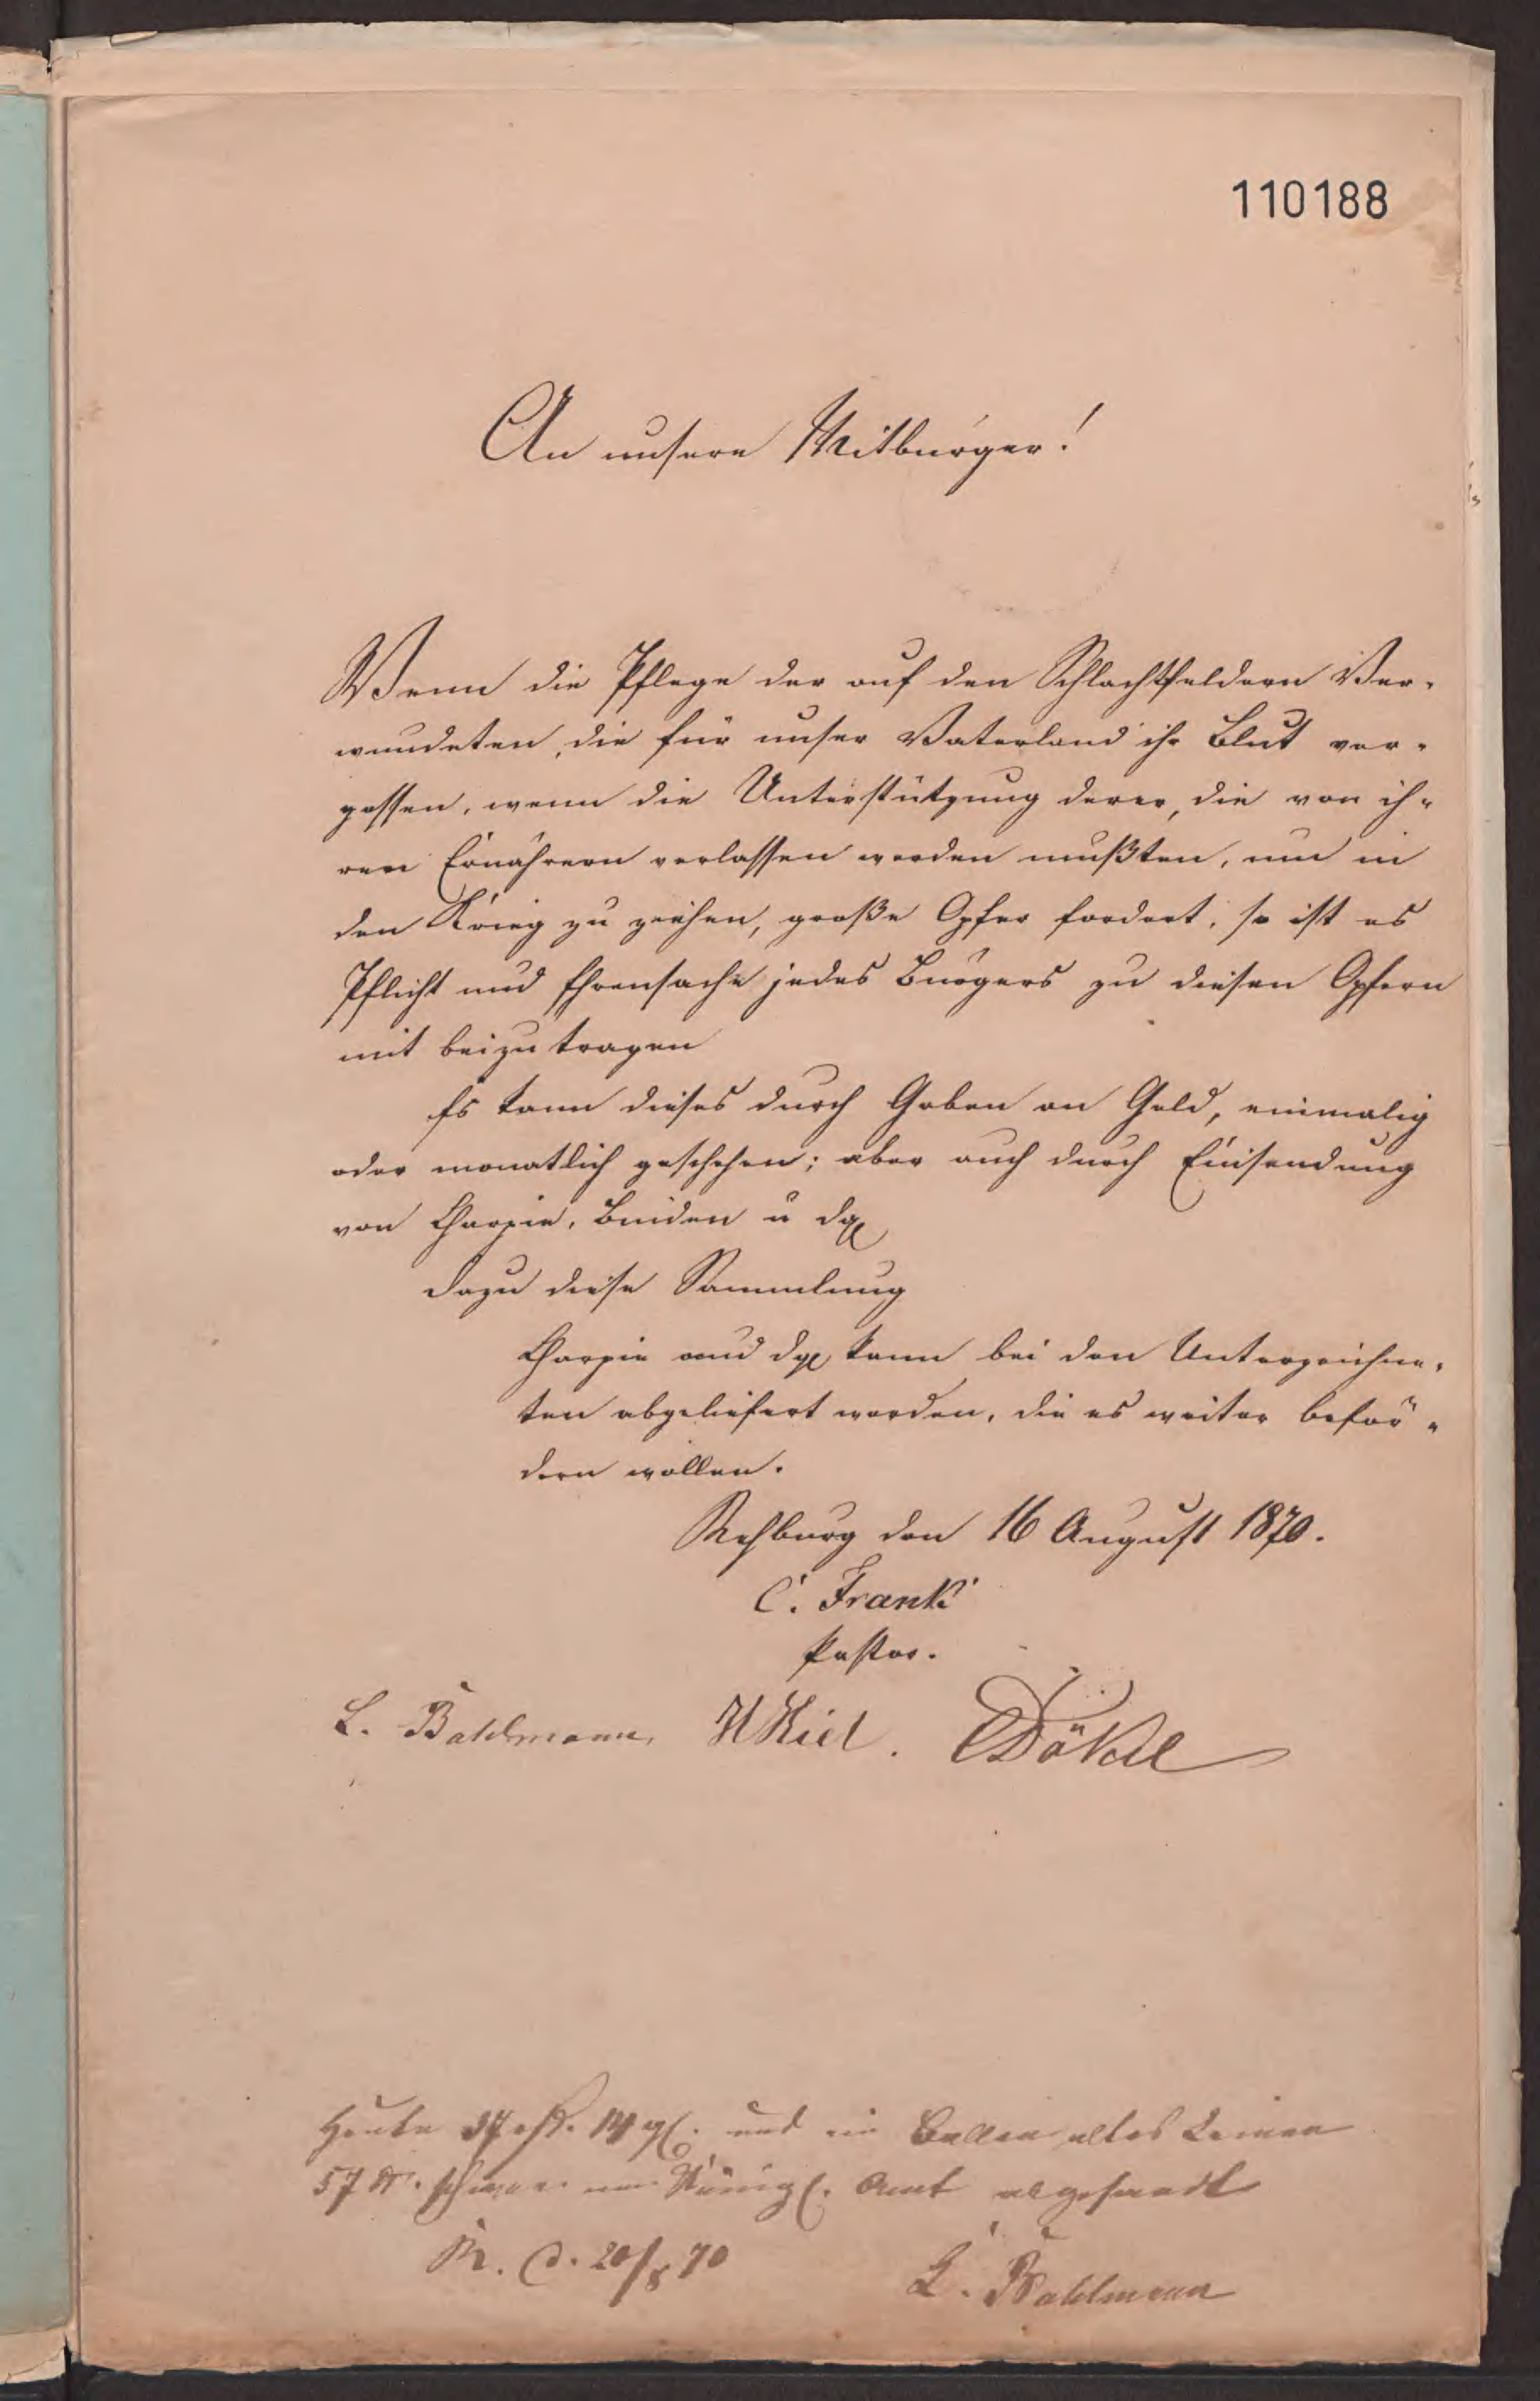 110188
An unsere Mitbürger!
Wenn die Pflege der auf den Schlachtfeldern Ver-
wundeten, die für unser Vaterland ihr Blut ver-
gossen, wenn die Unterstützung derer, die von ih-
ren Ernährern verlassen werden mußten, um in
den Krieg zu ziehen, große Opfer fordert, so ist es
Pflicht und Ehrensache jedes Bürgers zu diesen Opfern
mit beizutragen
Es kann dieses durch Gaben an Geld, einmalig
oder monatlich geschehen; aber auch durch Einsendung
von Charpie, Binden u dgl
Dazu diese Sammlung
Charpie und dgl kann bei den Unterzeichne-
ten abgeliefert werden, die es weiter beför-
dern wollen.
Rehburg den 16 August 1870.
C. Frank
Pastor.
L. Bahlmann, Dökel
Heute und ein Ballen altes Leinen
57 ℔. schwer Königl. Amt abgesandt
R. d. 20/8 70
L. Bahlmann